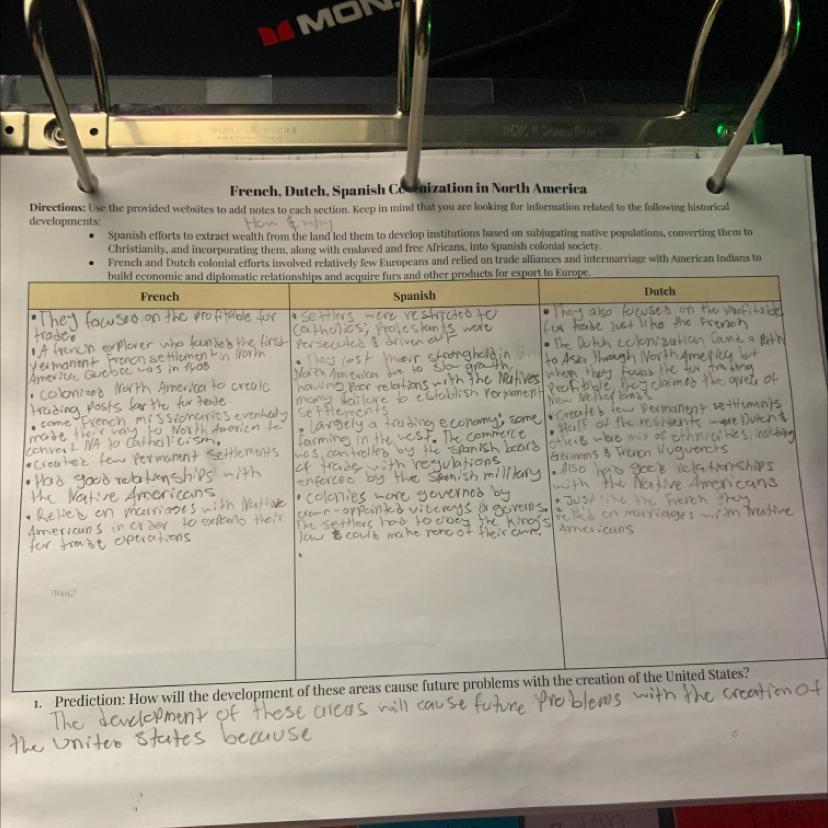 MON
French, Dutch, Spanish Co nization in North America
Directions: Use the provided websites to add notes to each section. Keep in mind that you are looking for information related to the following historical
developments:
How & why
• Spanish efforts to extract wealth from the land led them to develop institutions based on subjugating native populations, converting them to
Christianity, and incorporating them, along with enslaved and free Africans, into Spanish colonial society.
• French and Dutch colonial efforts involved relatively few Europeans and relied on trade alliances and intermarriage with American Indians to
build economic and diplomatic relationships and acquire furs and other products for export to Europe.
French
• They focused on the profitable fur
trade.
• A french explorer who founded the first
permanent french settlement in North
America, Quebec was in 1608
• colonized North America to create
trading posts for the fur trade.
• some French missionaries eventually
made their way to North America to
convert NA to Catholicism.
• Created few permanent settlements
• Had good relationships with
the Native Americans
• Relied on marriages with Native
Americans in order to expand their
fur trade operations
Spanish
• settlers were restricted to
Catholics; protestants were
persecuted & driven out
• They lost their stronghold in
North America due to slow growth,
having poor relations with the Natives
many failure to establish permanent
settlements
• Largely a trading economy; some
farming in the west. The commerce
was controlled by the Spanish board
of trade, with regulations
enforced by the Spanish military
• colonies were governed by
crown-appointed viceroys or governs.
The settlers had to obey the king's
law & could make none of their own.
Dutch
• They also focused on the profitable
fur trade just like the French
• The Dutch colonization found a path
to Asia through North America but
when they found the fur trading
profitable, they claimed the area of
New Netherlands.
• Created few permanent settlements
• Half of the residents were Dutch &
others were mix of ethnicities, including
Germans & French Huguenots
• Also had good relationships
with the Native Americans
• Just like the French they
relied on marriages with Native
Americans
1. Prediction: How will the development of these areas cause future problems with the creation of the United States?
The development of these areas will cause future problems with the creation of
the United States because